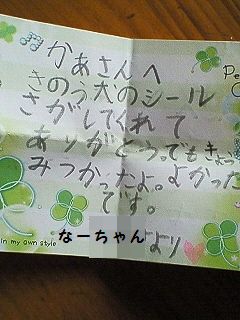 かあさんへ
きのう犬のシール
さがしてくれて
ありがとうっでもきょう
みつかったよ。よかった
です。
なーちゃん より
in my own style